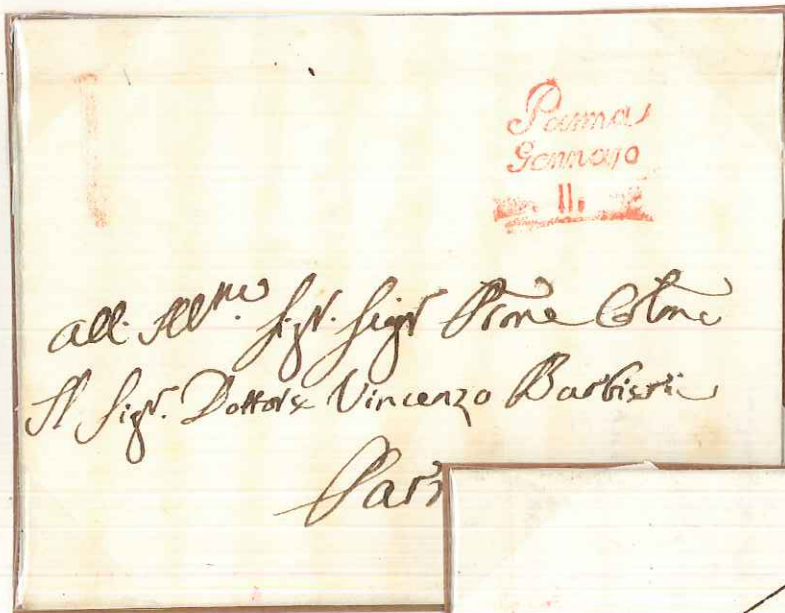 Parma
Gennajo
11.
All. Illmo. Sigr. Sigr. Prone Colmo
Il Sigr. Dottore Vincenzo Barbieri